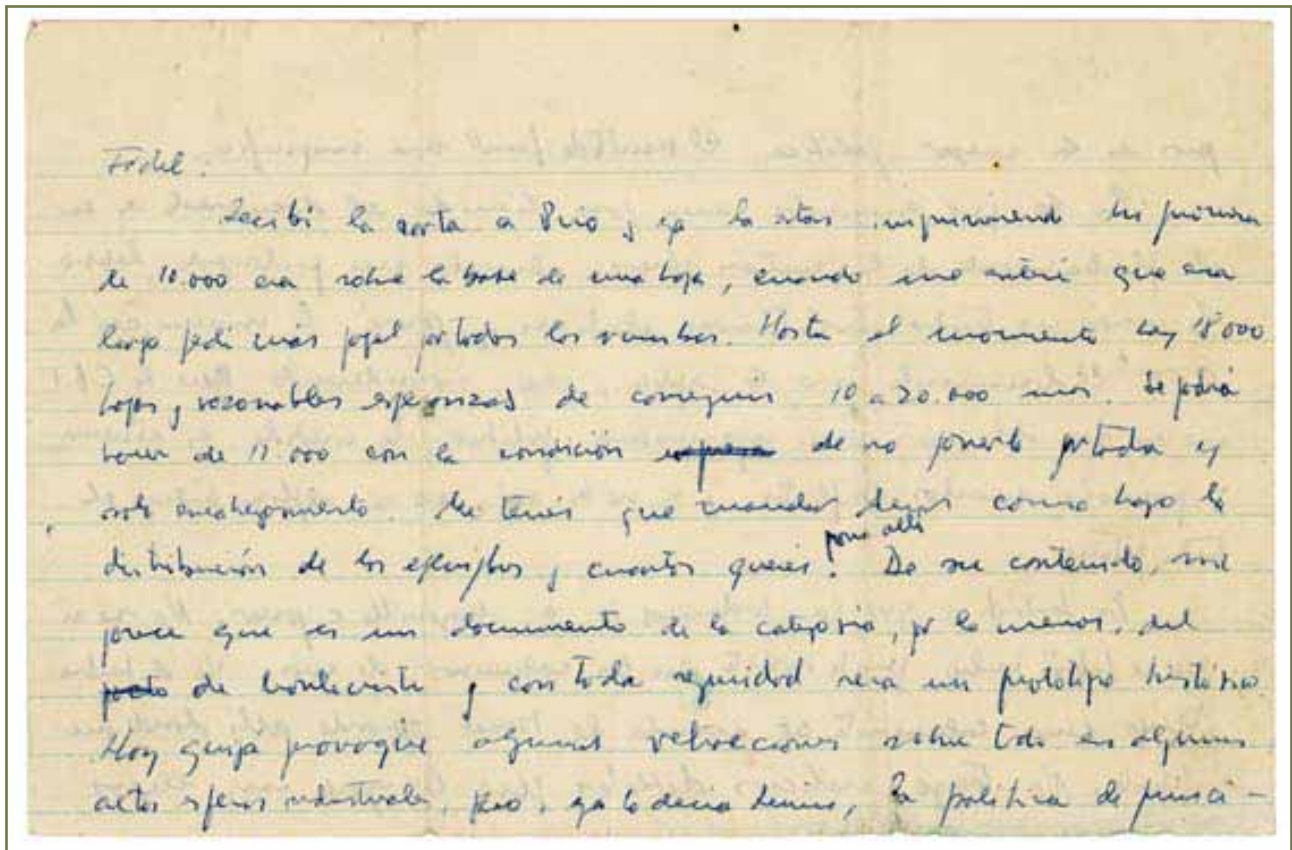 Fidel.
Recibí la carta a Prío y ya la estan imprimiendo. La primera
de 10.000 era sobre la base de una hoja, cuando me enteré que era
larga pedí mas papel por todos los rumbos. Hasta el momento hay 18000
hojas y razonables esperanzas de conseguir 10 a 20.000 mas. Se podrá
hacer de 11000 con la condición de no ponerle portada y
solo encabezamiento. Me tenés que mandar decir como hago la
distribución de los ejemplares y cuantos querés para allá. De su contenido, me
parece que es un documento de la categoria, por lo menos, del
de Montecristi y con toda seguridad sera un prototipo histórico.
Hoy quizá provoque algunas retracciones sobre todo en algunas
altas esferas industriales, pero, ya lo decia Lenin, la politica de princi-